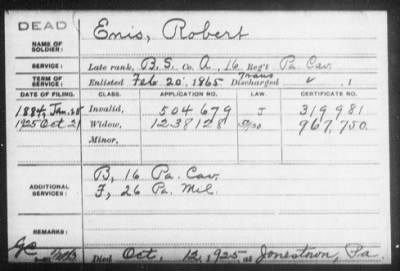 DEAD
Enis, Robert
NAME OF SOLDIER:
SERVICE: Late rank, B.S. Co. A, 16 Reg't Pa. Cav.
TERM OF SERVICE: Enlisted Feb 20, 1865 Discharged Trans, 1
DATE OF FILING. CLASS. APPLICATION NO. LAW. CERTIFICATE NO.
1884, Jan. 28 Invalid, 504679 J 319981
1925 Oct 21 Widow, 1238128 967,750.
Minor,
ADDITIONAL SERVICES: B, 16 Pa. Cav.
F, 26 Pa. Mil.
REMARKS:
Died Oct. 12, 1925, at Jonestown, Pa